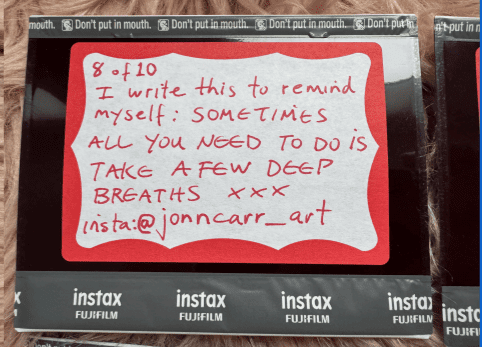 mouth. Don't put in mouth. Don't put in mouth. Don't put in mouth. Don't put in
8 of 10
I write this to remind
myself: SOMETIMES
ALL YOU NEED TO DO is
TAKE A FEW DEEP
BREATHS XXX
insta:@jonncarr_art
instax instax instax instax
FUJIFILM FUJIFILM FUJIFILM FUJIFILM
put in